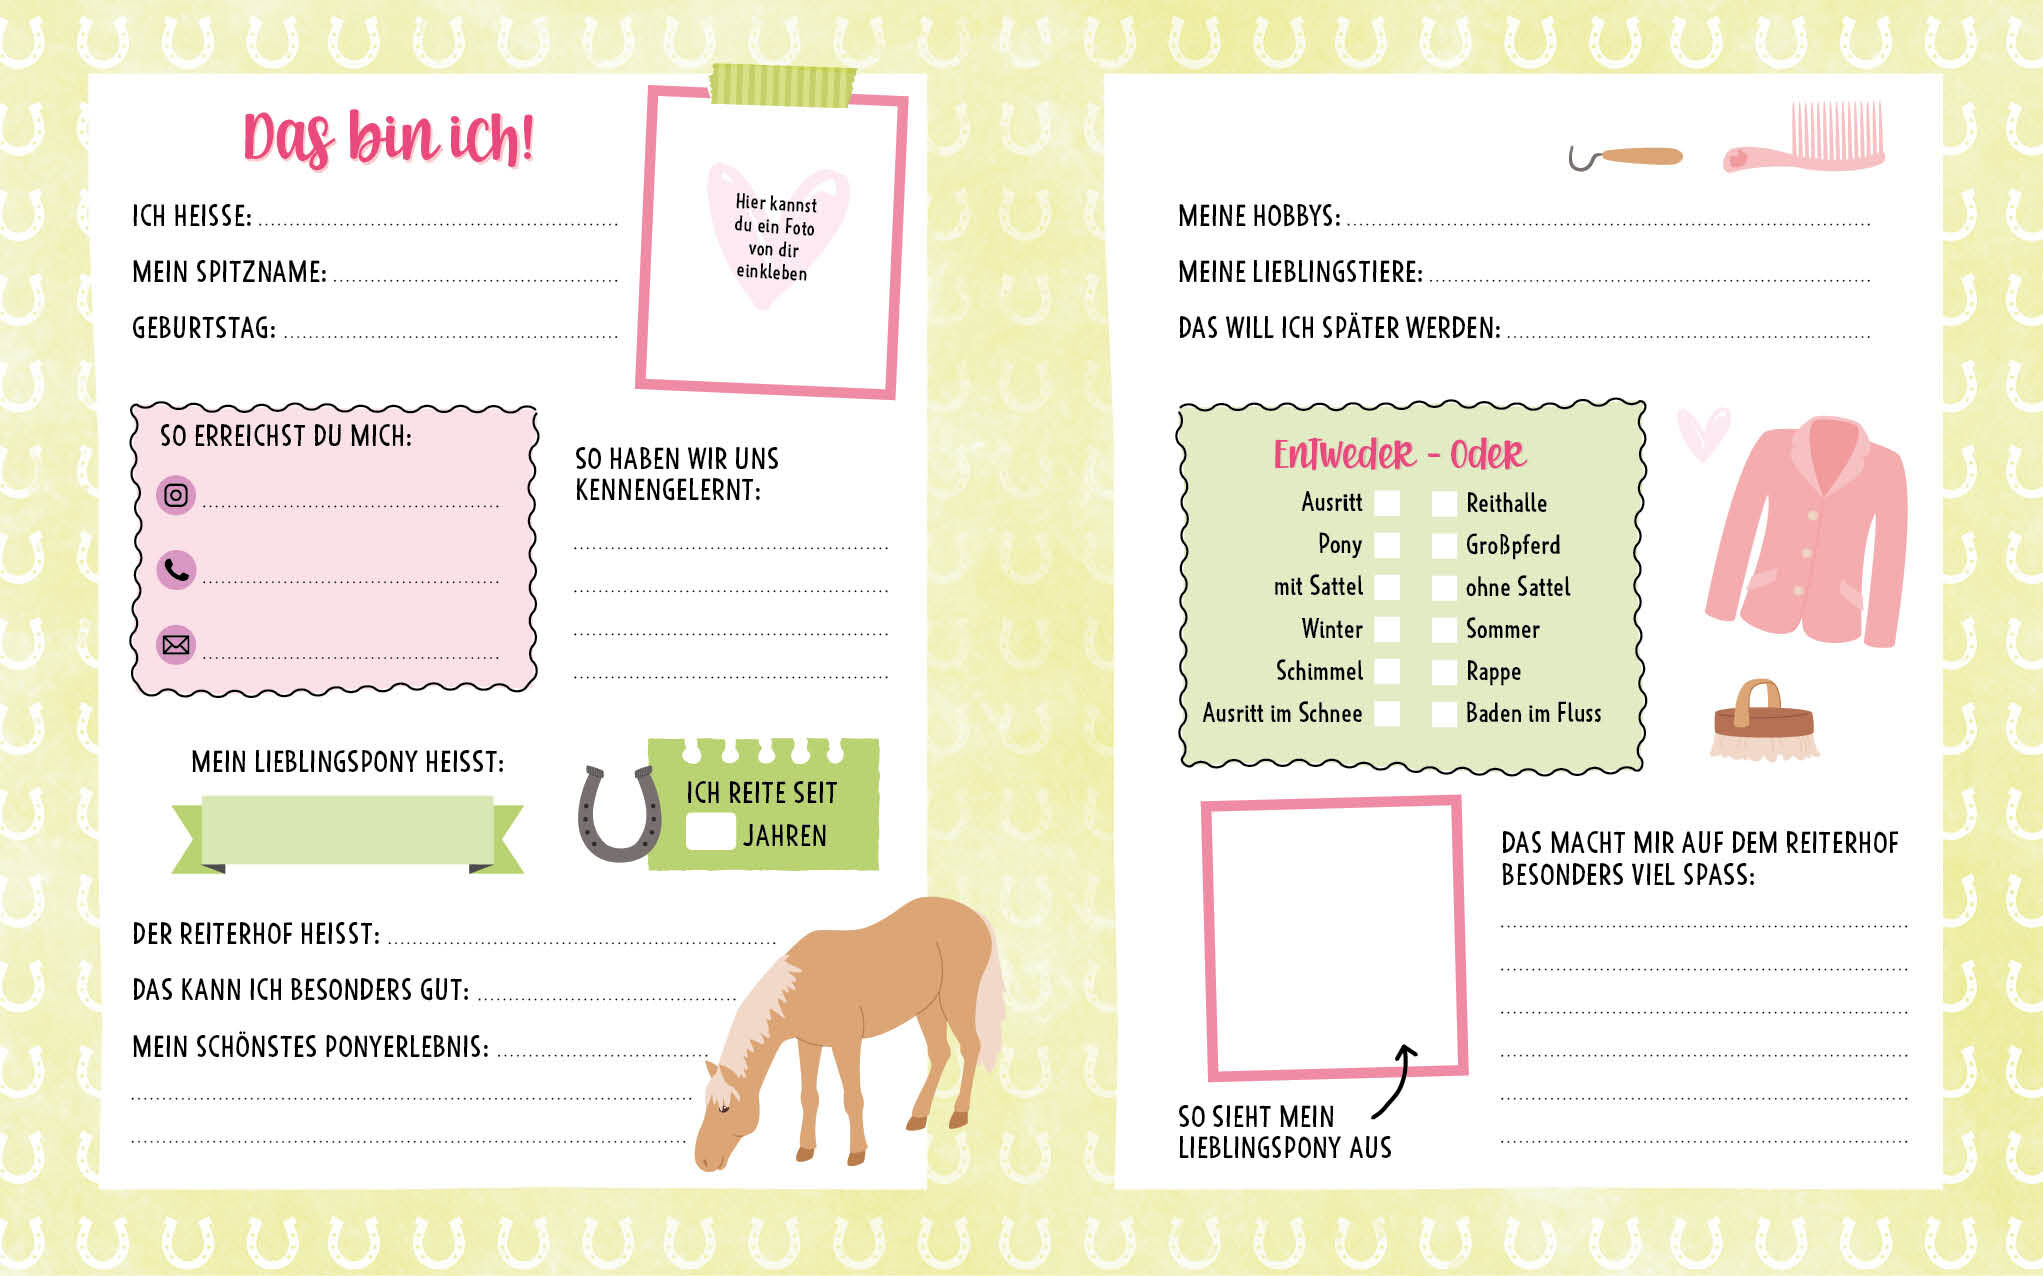 Das bin ich!
ICH HEISSE:
MEIN SPITZNAME:
GEBURTSTAG:
Hier kannst
du ein Foto
von dir
einkleben
SO ERREICHST DU MICH:
SO HABEN WIR UNS
KENNENGELERNT:
MEIN LIEBLINGSPONY HEISST:
ICH REITE SEIT
JAHREN
DER REITERHOF HEISST:
DAS KANN ICH BESONDERS GUT:
MEIN SCHÖNSTES PONYERLEBNIS:
MEINE HOBBYS:
MEINE LIEBLINGSTIERE:
DAS WILL ICH SPÄTER WERDEN:
Entweder - Oder
Ausritt Reithalle
Pony Großpferd
mit Sattel ohne Sattel
Winter Sommer
Schimmel Rappe
Ausritt im Schnee Baden im Fluss
SO SIEHT MEIN
LIEBLINGSPONY AUS
DAS MACHT MIR AUF DEM REITERHOF
BESONDERS VIEL SPASS: